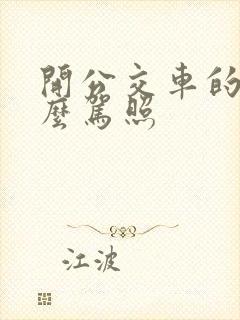 開公交車的
麼駕照
江波